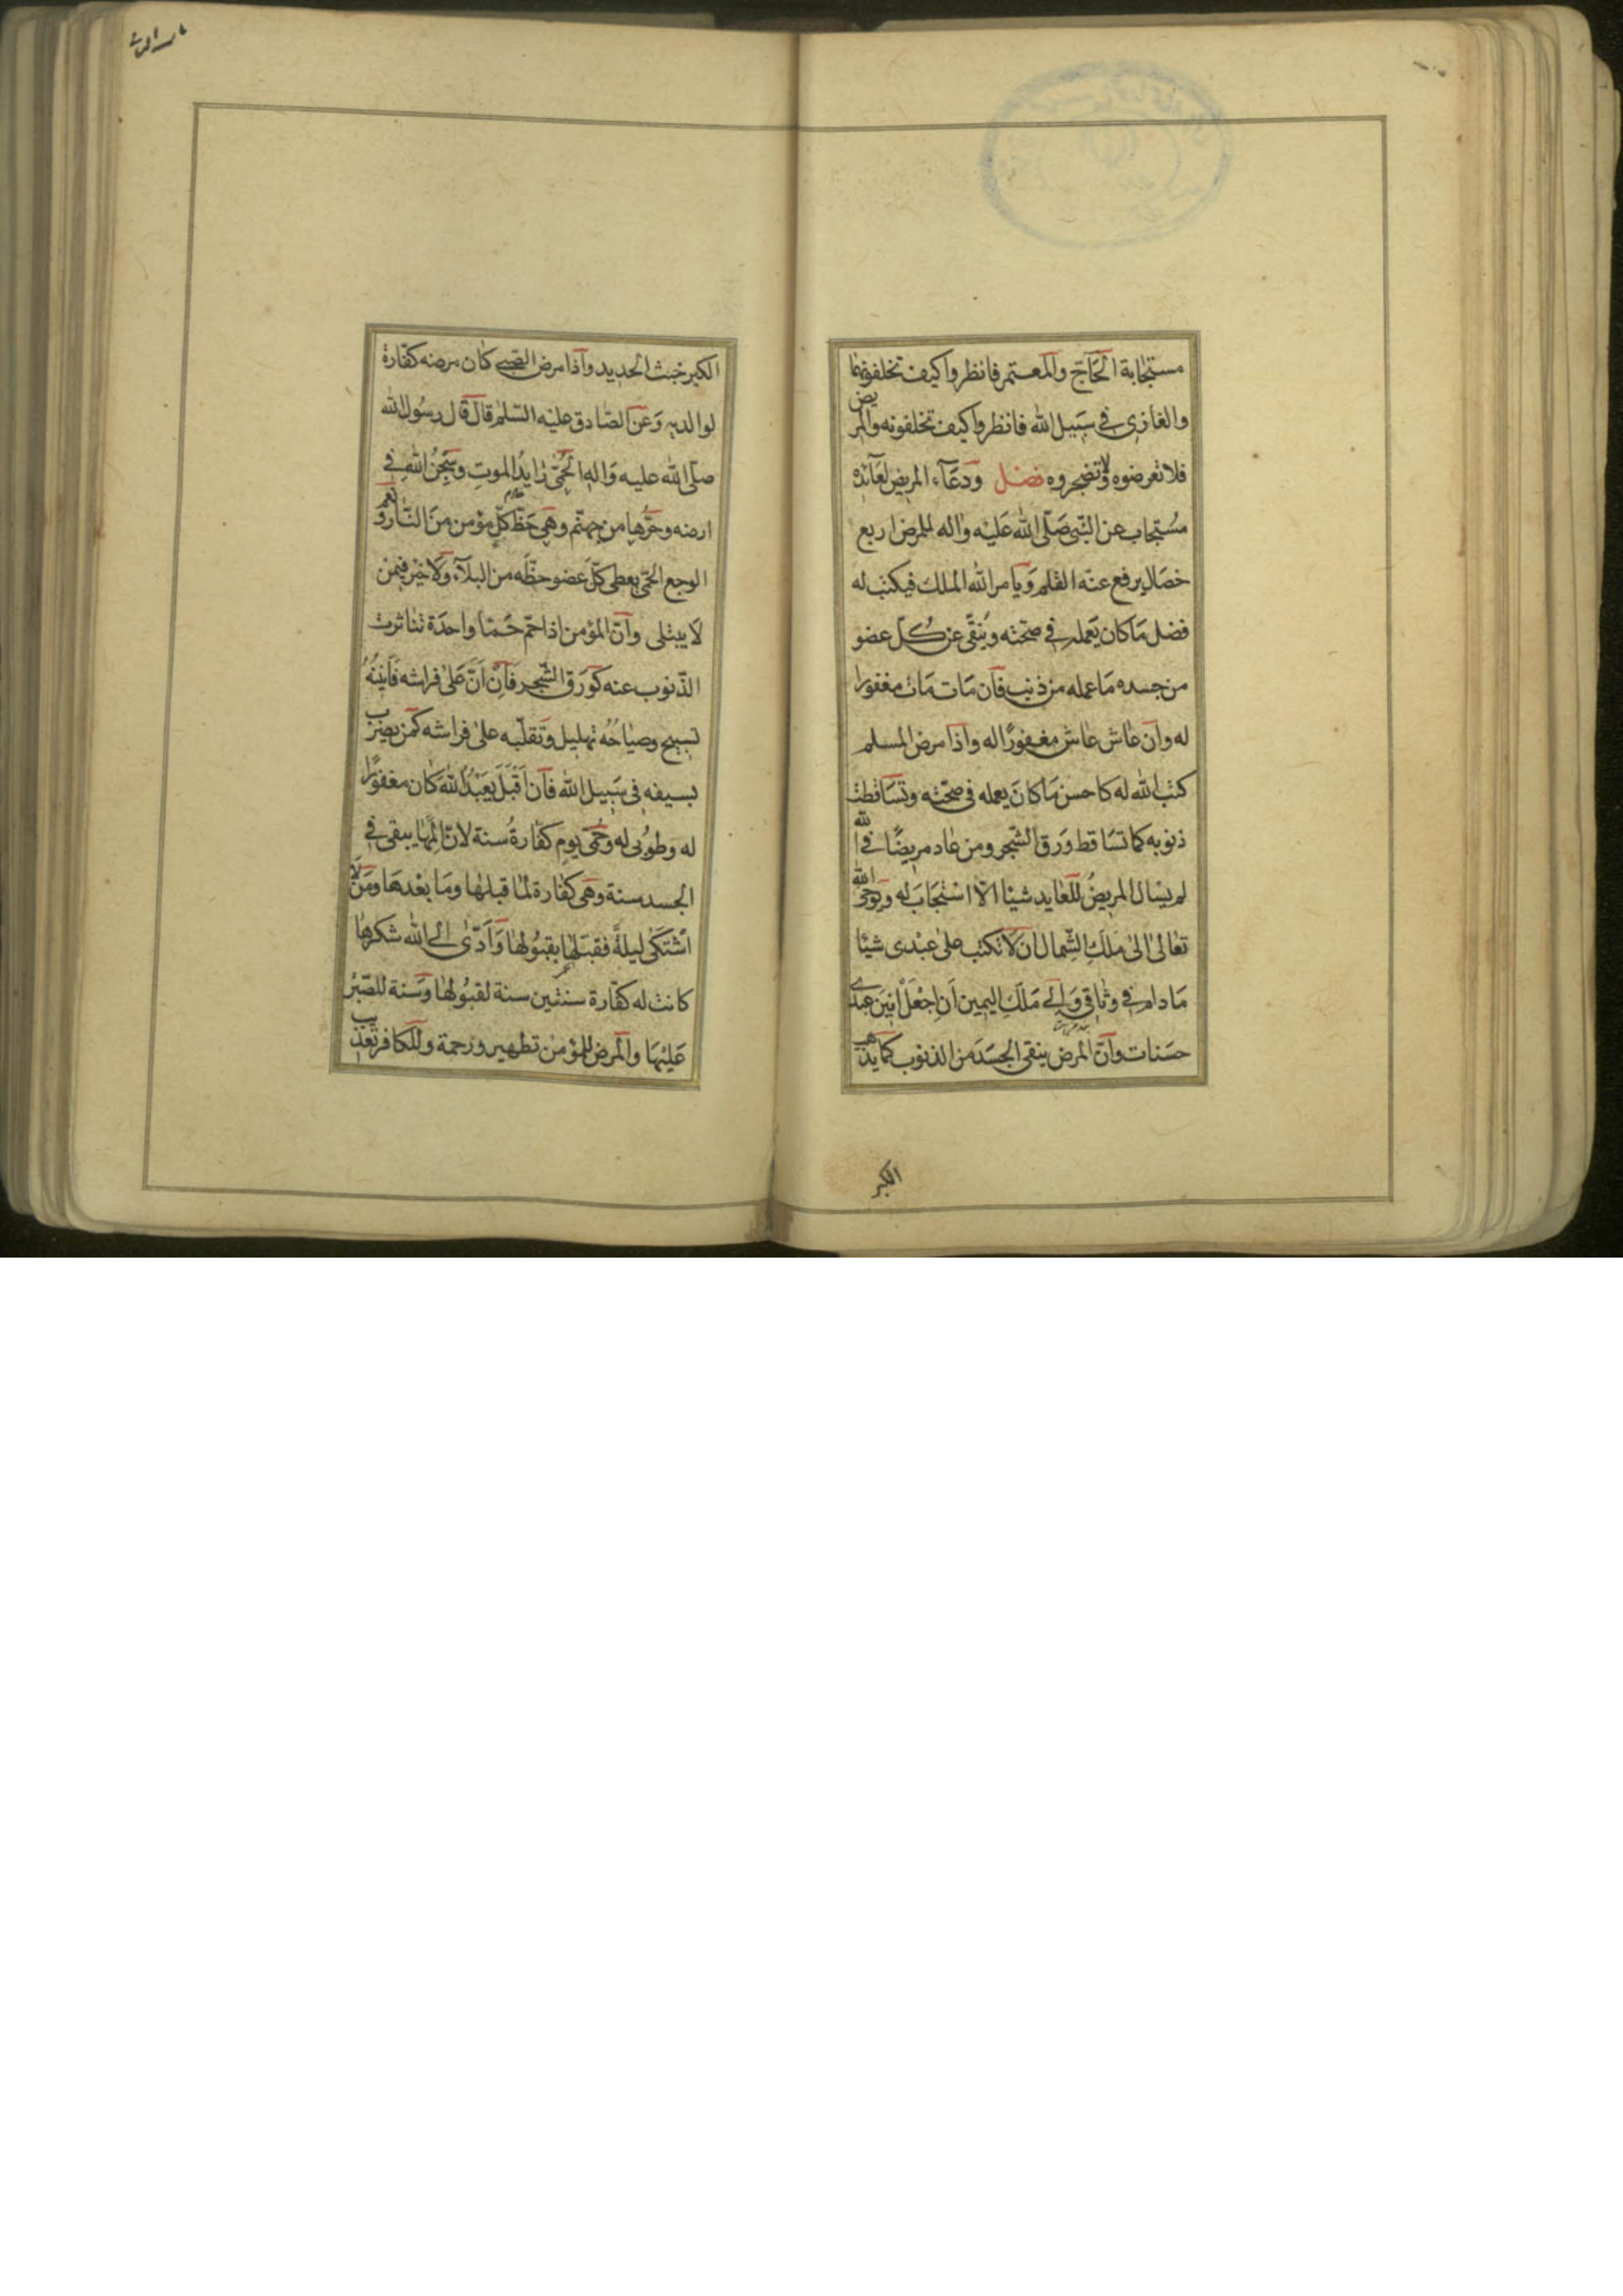 مستجابة الحاجّ والمعتمر فانظروا كيف تخلفونهما
والغازى فى سبيل الله فانظروا كيف تخلفونه والمريض
فلا تعرضوه ولا تضجروه فصل ودعاء المريض لعائده
مستجاب عن النبى صلّى الله عليه واله للمرض اربع
خصال يرفع عنه القلم ويامر الله الملك فيكتب له
فضل ما كان يعمله فى صحّته وينقّى عن كلّ عضو
من جسده ما عمله من ذنب فان مات مات مغفورا
له وان عاش عاش مغفورًا له واذا مرض المسلم
كتب الله له كاحسن ما كان يعمله فى صحّته وتساقطت
ذنوبه كما تساقط ورق الشّجر ومن عاد مريضًا فى الله
لم يسال المريضُ للعايد شيئا الّا استجاب له ويوحى الله
تعالى الى ملك الشّمال ان لا تكتب على عبدى شيئا
ما دام فى وثاقى والى ملك اليمين ان اجعل انين عبدى
حسنات وانّ المرض ينقى الجسد من الذنوب كما يذهب
الكير
الكير خبث الحديد واذا مرض الصّبى كان مرضه كفّارة
لوالديه وعن الصّادق عليه السّلم قال قال رسول الله
صلّى الله عليه واله الحمّى رايد الموت وسجن الله فى
ارضه وحرّها من جهنّم وهى حظّ كلّ مؤمن من النّار ونعم
الوجع الحمّى يعطى كلّ عضو حظّه من البلاء ولا خير فيمن
لا يبتلى وانّ المؤمن اذا حمّ حمّا واحدة تناثرت
الذّنوب عنه كورق الشّجر فان انّ على فراشه فانينه
تسبيح وصياحه تهليل وتقلّبه على فراشه كمن يضرب
بسيفه فى سبيل الله فان اقبل يعبد الله كان مغفورًا
له وطوبى له وحمّى يوم كفّارة سنة لانّ المها يبقى فى
الجسد سنة وهى كفارة لما قبلها وما بعدها ومن
اشتكى ليلةً فقبلها بقبولها وادّى الى الله شكرها
كانت له كفّارة سنتين سنة لقبولها وسنة للصّبر
عليها والمرض للمؤمن تطهير ورحمة وللكافر تعذيب